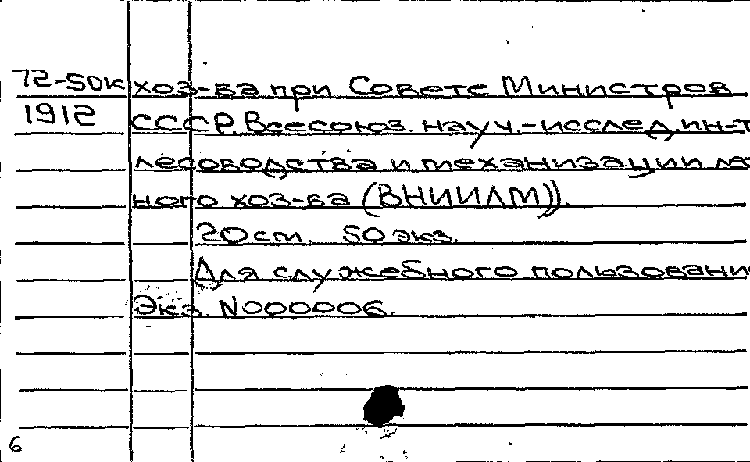 72-50к хоз-ва при Совете Министров
1912 СССР. Всесоюз. науч.-исслед. ин-т
лесоводства и механизации лес
ного хоз-ва (ВНИИЛМ)).
20 см. 50 экз.
Для служебного пользовани
Экз. №000006.
6